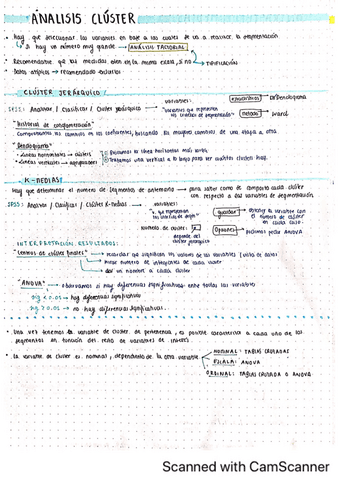 ANÁLISIS CLÚSTER
• hay que seleccionar las variables en base a las cuales se va a realizar la segmentación
↳ si hay un número muy grande → ANÁLISIS FACTORIAL
• Recomendable que las medidas estén en la misma escala, si no → TIPIFICACIÓN
• Datos atípicos → recomendado excluirlos
CLÚSTER JERÁRQUICO:
SPSS: Analizar / Clasificar / Clúster jerárquico → variables: "variables que representan los criterios de segmentación"
estadísticos → Dendograma
método → Ward
"Historial de conglomeración"
Comprobamos los cambios en los coeficientes, buscando el mayores cambios de una etapa a otra
"Dendograma"
• Líneas horizontales → clústers
• Líneas verticales → agrupaciones
① Buscamos la línea horizontal más larga
② Trazamos una vertical a lo largo para ver cuántos clústers hay.
K-MEDIAS:
Hay que determinar el número de segmentos de antemano → para saber cómo se comporta cada clúster con respecto a las variables de segmentación
SPSS: Analizar / Clasificar / Clúster K-medias → variables:
guardar
número de clúster:
depende del clúster jerárquico
Opciones → pedimos tabla ANOVA
INTERPRETACIÓN RESULTADOS:
"Centros de clúster finales"
→ recordar qué significan los valores de las variables (vista de datos)
→ mirar número de integrantes de cada clúster
→ dar un nombre a cada clúster
"ANOVA" → observamos si hay diferencias significativas entre todas las variables
sig < 0.05 → hay diferencias significativas
sig > 0.05 → no hay diferencias significativas.
• Una vez tenemos la variable de clúster de pertenencia, es posible caracterizar a cada uno de los segmentos en función del resto de variables de interés.
• La variable de clúster es nominal, dependiendo de la otra variable
NOMINAL: TABLAS CRUZADAS
ESCALA: ANOVA
ORDINAL: TABLAS CRUZADAS o ANOVA
Scanned with CamScanner